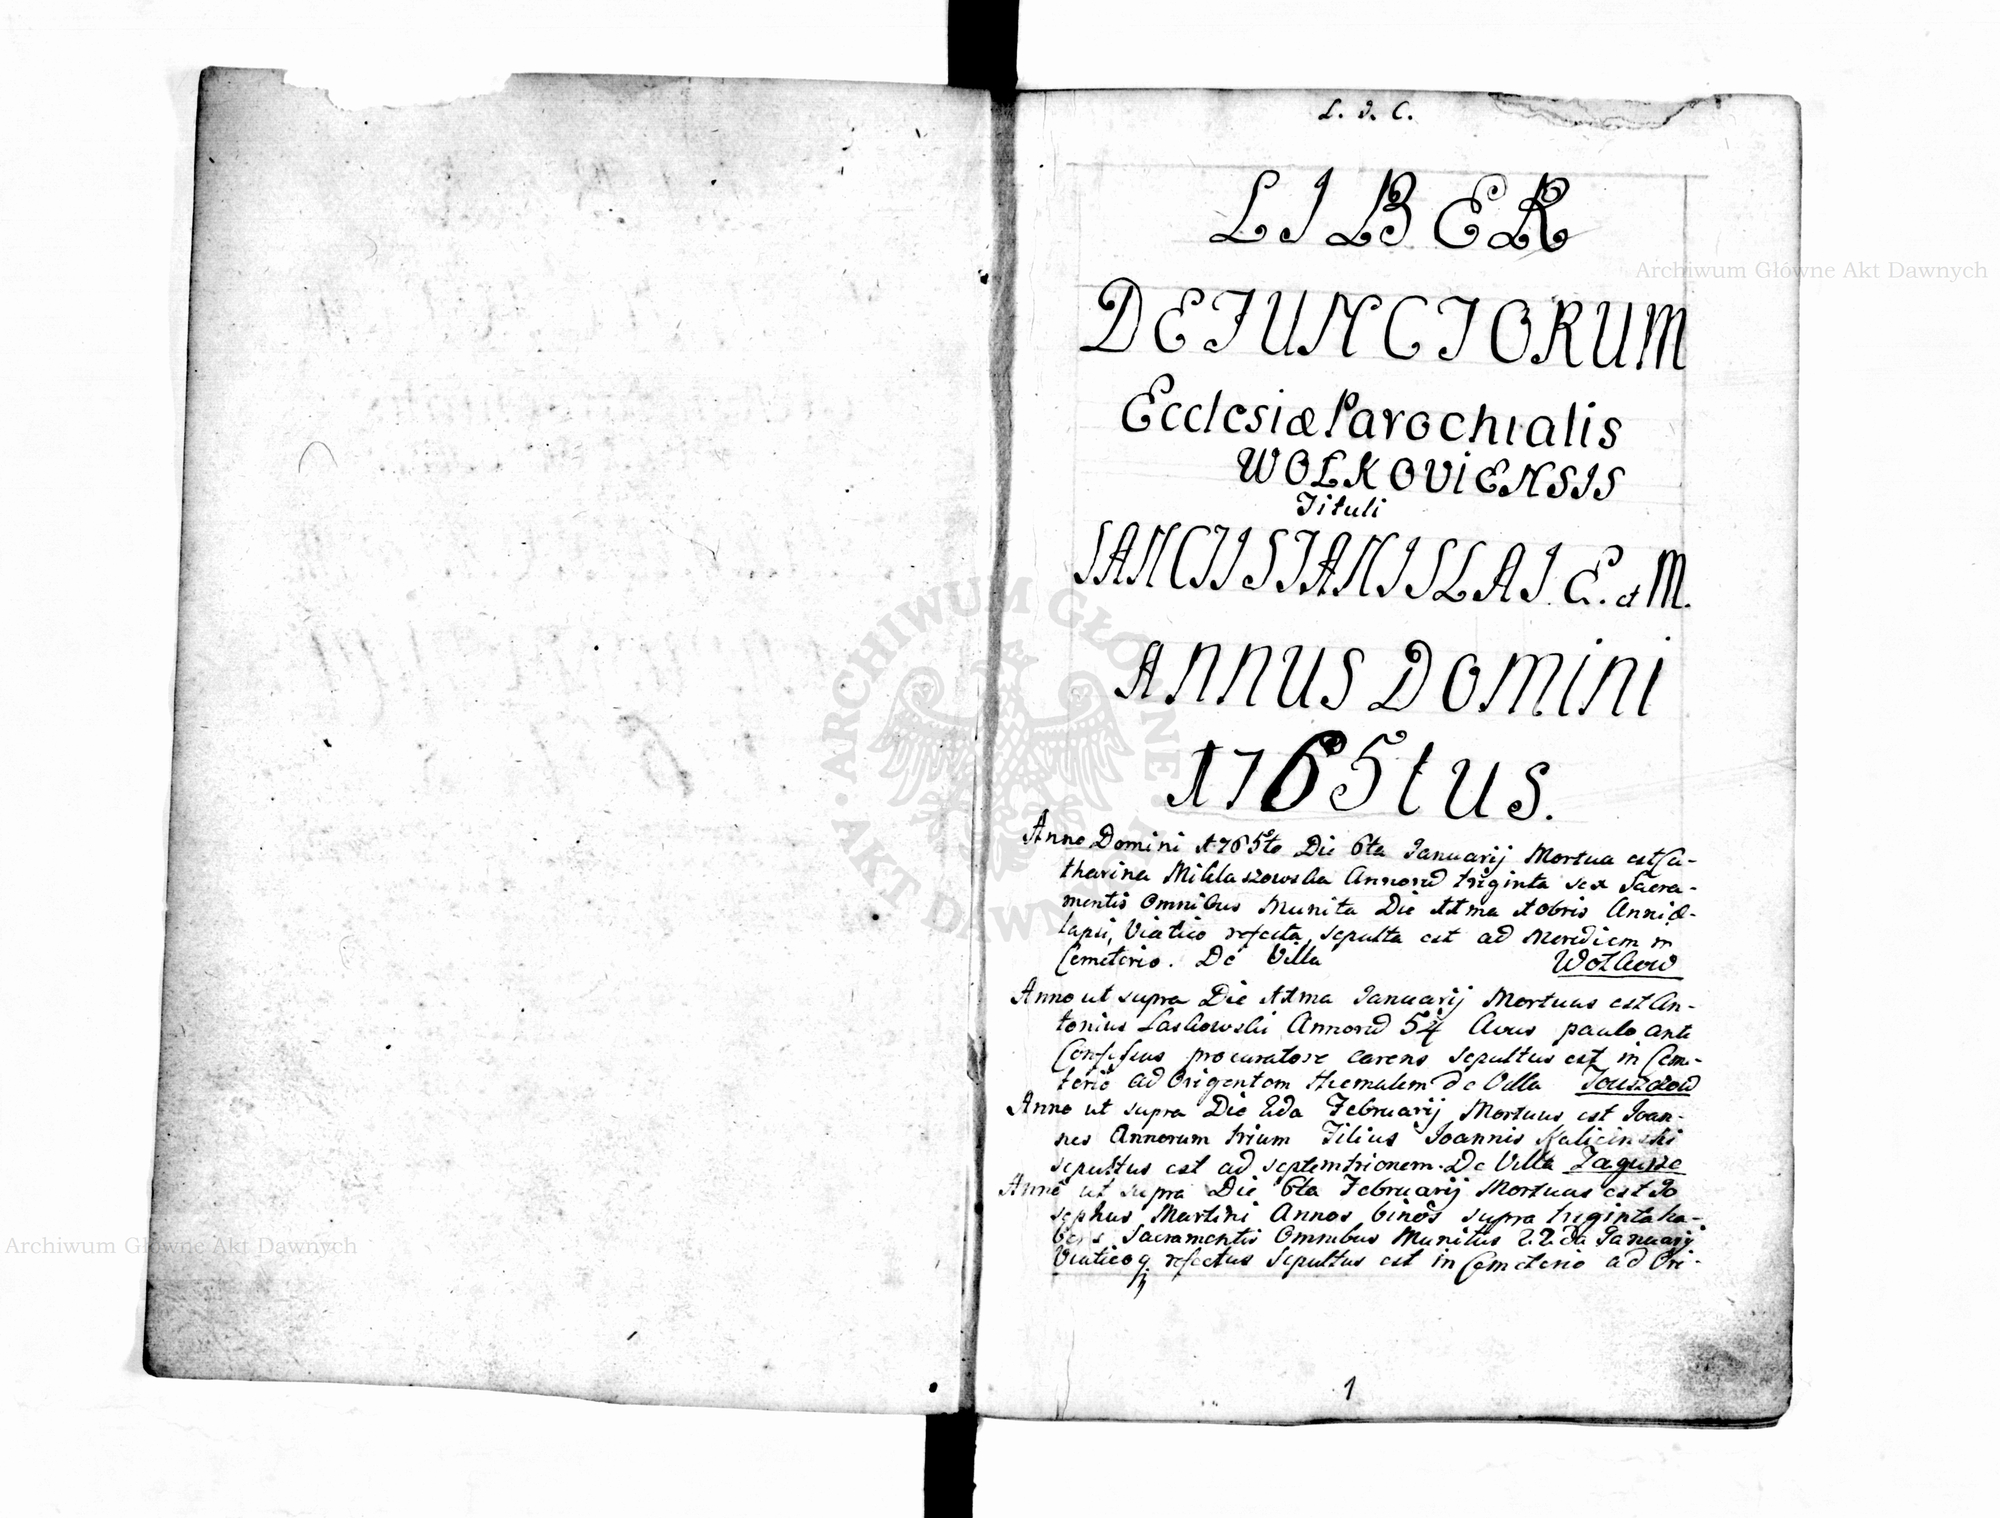 L. J. C.
LIBER
DEFUNCTORUM
Ecclesiæ Parochialis
WOLKOViENSIS
Tituli
SANCTI STANISLAI E. et M.
ANNUS DOMiNi
1765tus.
Anno Domini 1765to Die 6ta Januarij Mortua est Ca-
tharina Miklaszowska Annorũ triginta sex Sacra-
mentis Omnibus Munita Die 11ma 10bris Anni e-
lapsi, Viatico refecta, sepulta est ad Meridiem in
Cemeterio. De Villa Wołkow
Anno ut supra Die 11ma Januarij Mortuus est An-
tonius Laskowski Annorũ 54 paulo ante
Confessus procuratore carens sepultus est in Ceme-
terio ad Origentem Hiemalem de Villa
Anno ut supra Die 2da Februarij Mortuus est Joan-
nes Annorum trium Filius Joannis Kalicinski
sepultus est ad septemtrionem. De Villa Zagurze
Anno ut supra Die 6ta Februarij Mortuus est Jo
sephus Martini Annos binos supra triginta ha-
bens Sacramentis Omnibus Munitus 22da Januarij
Viaticoq refectus Sepultus est in Cemeterio ad Ori-
1
Archiwum Główne Akt Dawnych
Archiwum Główne Akt Dawnych
ARCHIWUM GŁÓWNE · AKT DAWNYCH ·